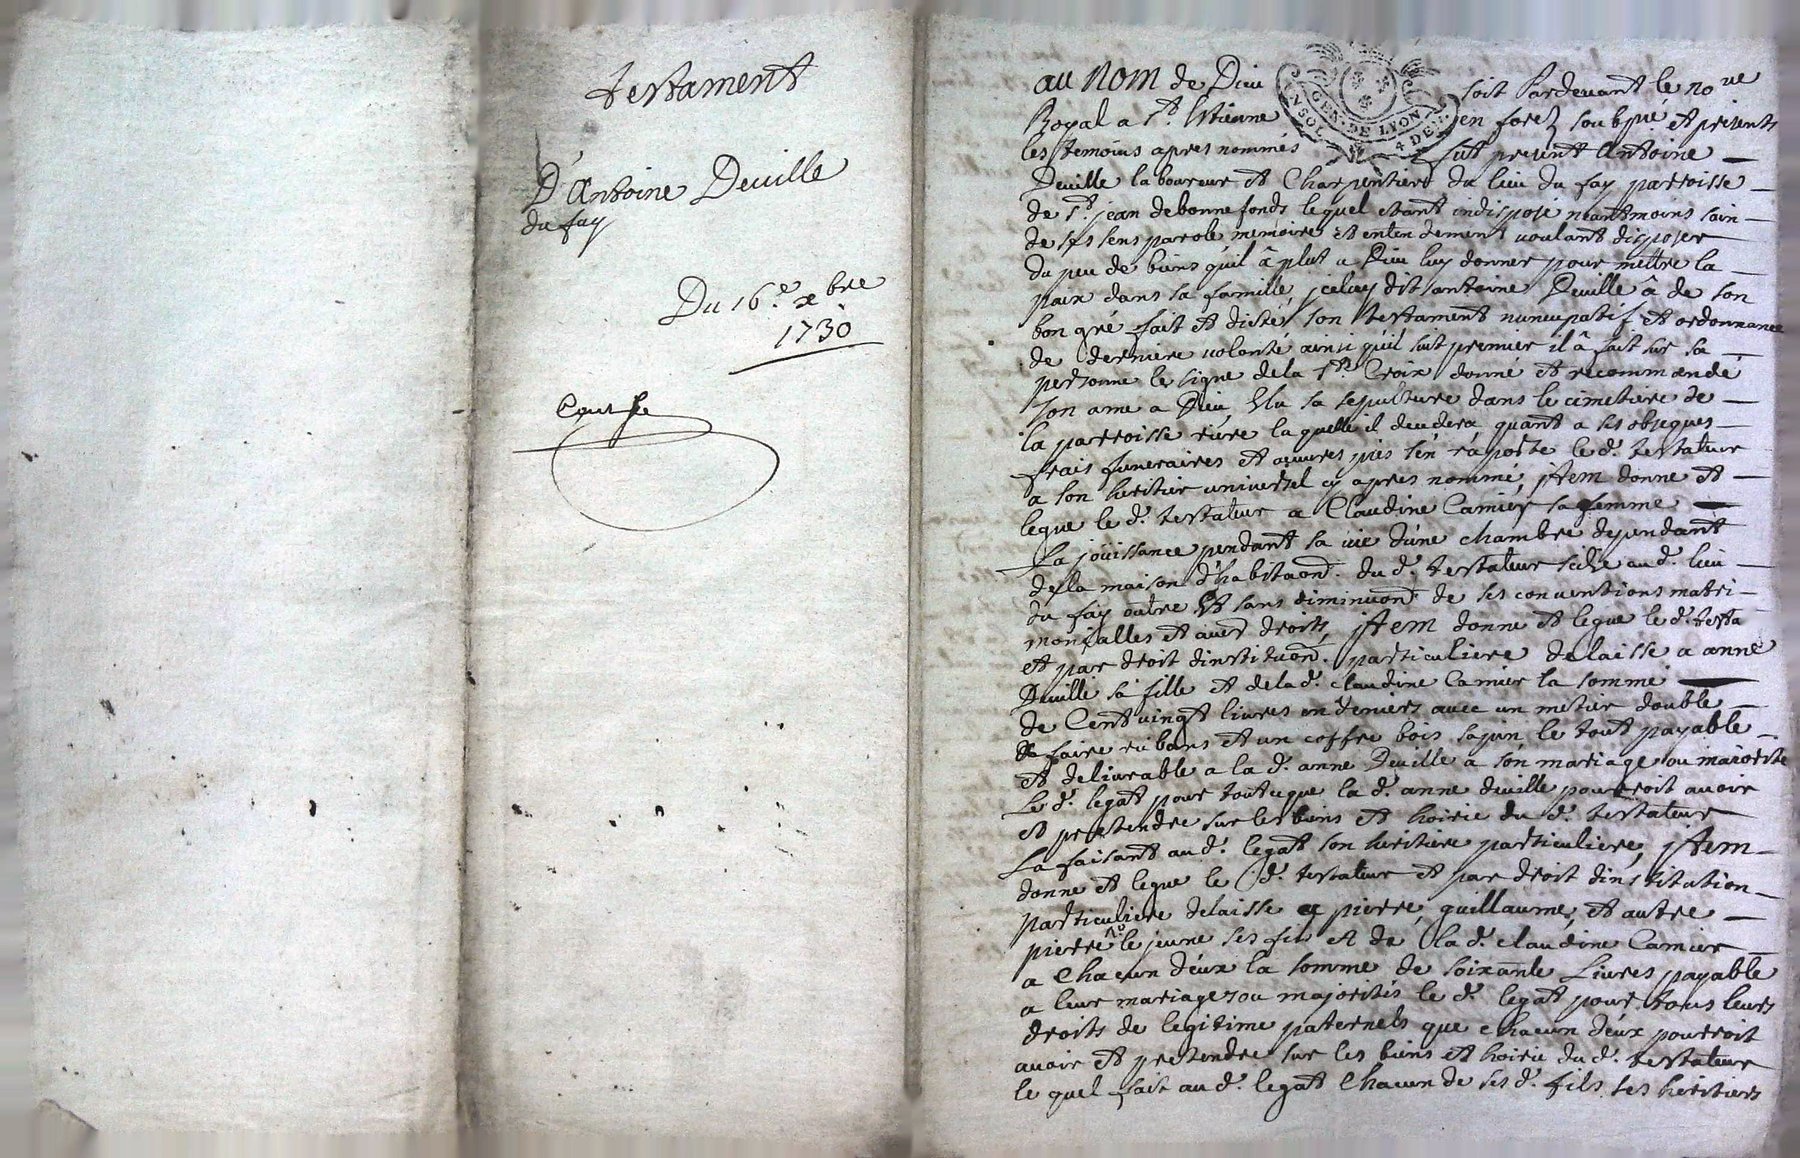 testament
D'Antoine Deville
du fay
Du 16.e xbre
1730
au nom de Dieu soit Pardevant le no.re
Royal a St. Estienne en forez soubz.né et présents
les temoins apres nommés fut present Antoine
Deville laboureur et Charpentier du lieu du fay parroisse
de St. jean de bonnefonds lequel etant indisposé neantmoins sain
de ses sens parole memoire et entendement voulant disposer
du peu de biens qu'il â plut a Dieu luy donner pour mettre la
paix dans sa famille, jceluy dit antoine Deville â de son
bon gré fait et dicté son testament nuncupatif et ordonnance
de derniere volonté ainsi qu'il suit premier il â fait sur sa
personne le signe de la Ste. Croix donné et recommandé
son ame a Dieu, Elu sa sepulture dans le cimetiere de
la parroisse riere laquelle il decedera quant a ses obseques
frais funeraires et œuvres pies s'en raporte le d. testateur
a son heritier universel cy apres nommé, jtem donne et
legue le d. testateur a Claudine Camier sa femme
La joüissance pendant sa vie d'une chambre dependant
de la maison d'habitaon. du d. testateur size au d. lieu
du fay outre et sans diminuon de ses conventions matri-
monialles et aues droits, jtem donne et legue le d. testa
et par droit d'instituon. particuliere delaisse a anne
Deville sa fille et de la d. claudine Camier la somme
de Cent vingt livres en deniers avec un metier double
a faire rubans et un coffre bois sapin le tout payable
et delivrable a la d. anne Deville a son mariage ou majorité
Le d. legat pour tout ce que la d. anne deville pourroit avoir
et pretendre sur les biens et hoirie du d. testateur
La faisant au d. legat son heritiere particuliere, jtem
donne et legue le d. testateur et par droit d'institution
particuliere delaisse a pierre, guillaume, et autre
pierre le jeune ses fils et de la d. claudine Camier
a Chacun d'eux la somme de soixante Livres payable
a leur mariages ou majorités le d. legat pour tous leurs
droits de legitime paternels que chacun d'eux pourroit
avoir et pretendre sur les biens et hoirie du d. testateur
le quel fait au d. legat Chacun de ses d. fils ses heritiers
GEN. DE LYON
4 DEN.